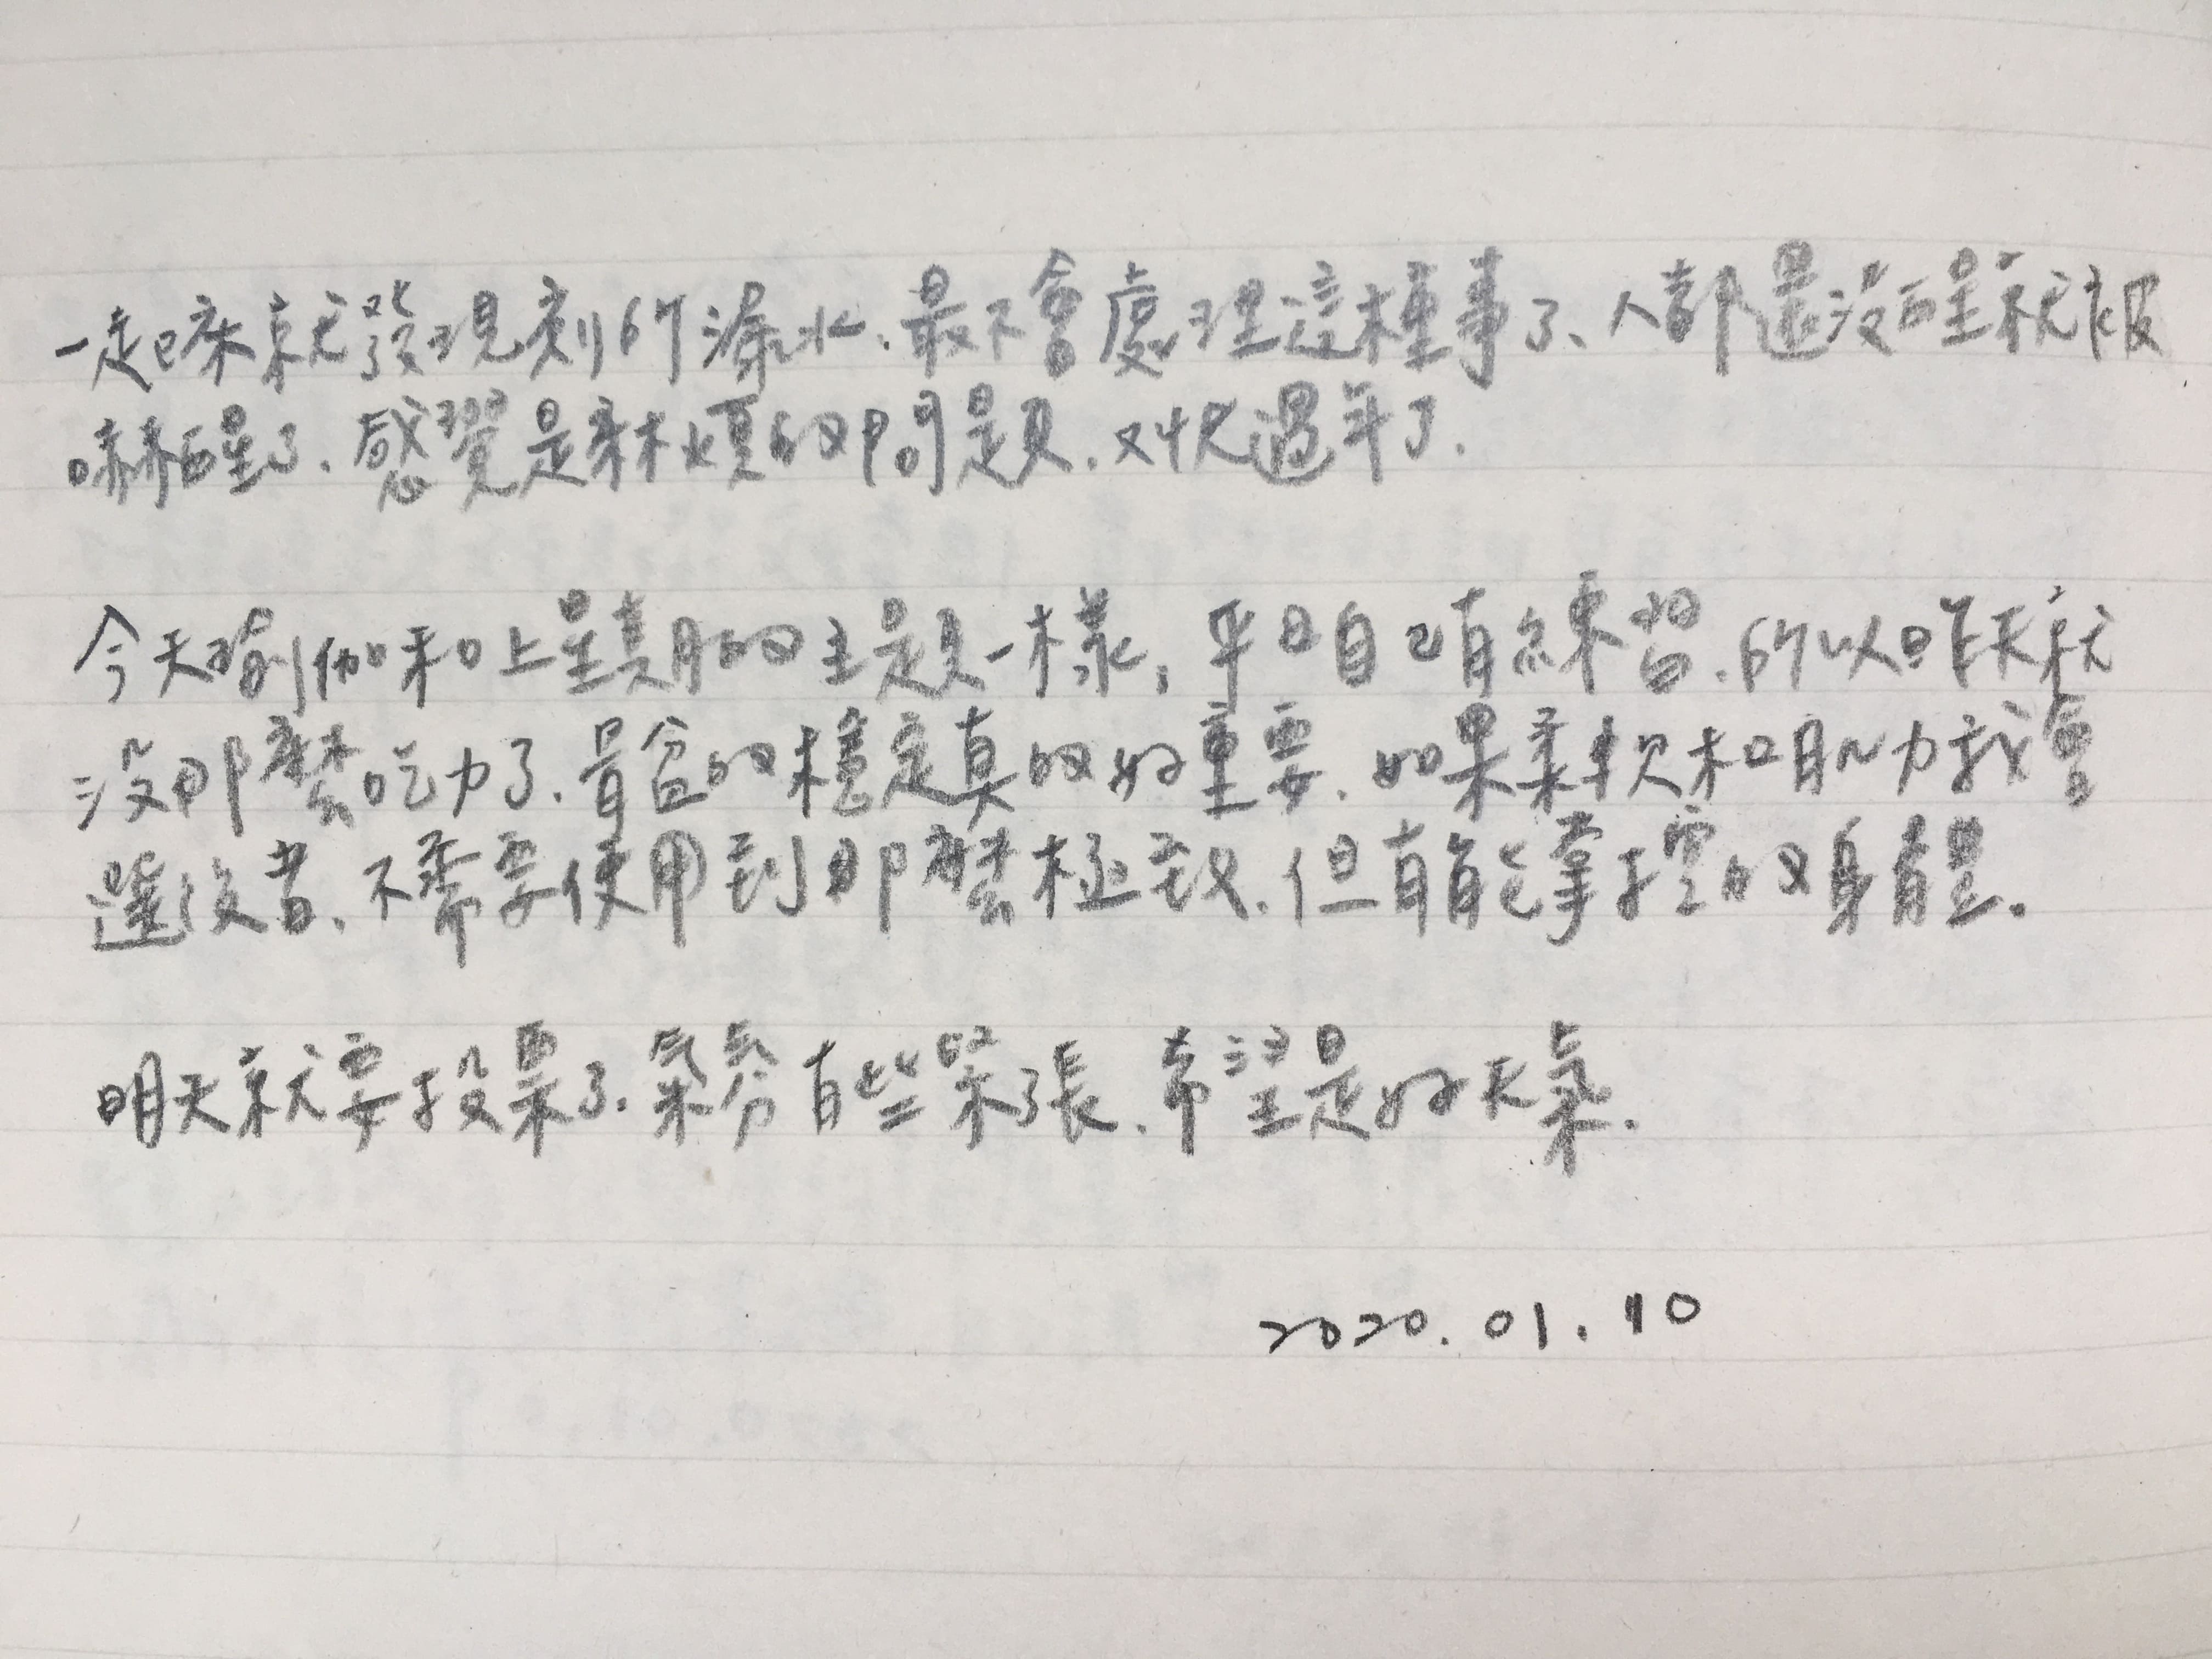 一起床就發現廁所漏水、最不會處理這種事了、人都還沒醒就被
嚇醒了、感覺是麻煩的問題、又快過年了.
今天瑜伽和上星期的主題一樣，平日自己有練習、所以昨天就
沒那麼吃力了、骨盆的穩定真的好重要、如果柔軟和肌力我會
選後者、不需要使用到那麼極致、但有能掌控的身體。
明天就要投票了、氣氛有些緊張、希望是好天氣.
2020.01.10